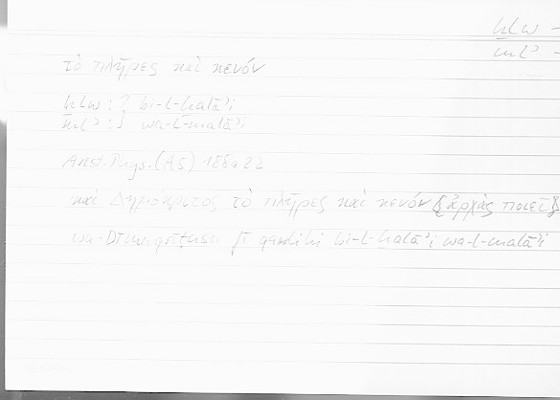 ḫlw –
mlʾ –
τὸ πλῆρες καὶ κενόν
ḫlw : ? bi-l-ḫalāʾi
mlʾ : ? wa-l-malāʾi
Arist. Phys. (A5) 188a22
καὶ Δημόκριτος τὸ πλῆρες καὶ κενόν ἀρχὰς ποιεῖ
wa-Dīmuqrīṭusu fī qawlihi bi-l-ḫalāʾi wa-l-malāʾi